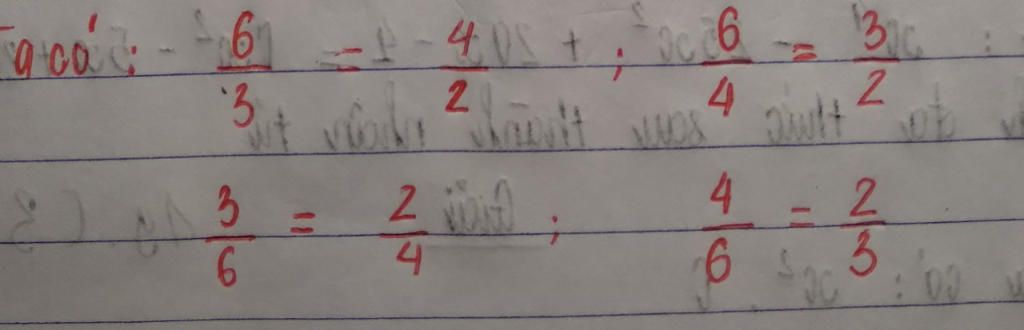 Ta có: 6/3 = 4/2 ; 6/4 = 3/2
3/6 = 2/4 ; 4/6 = 2/3